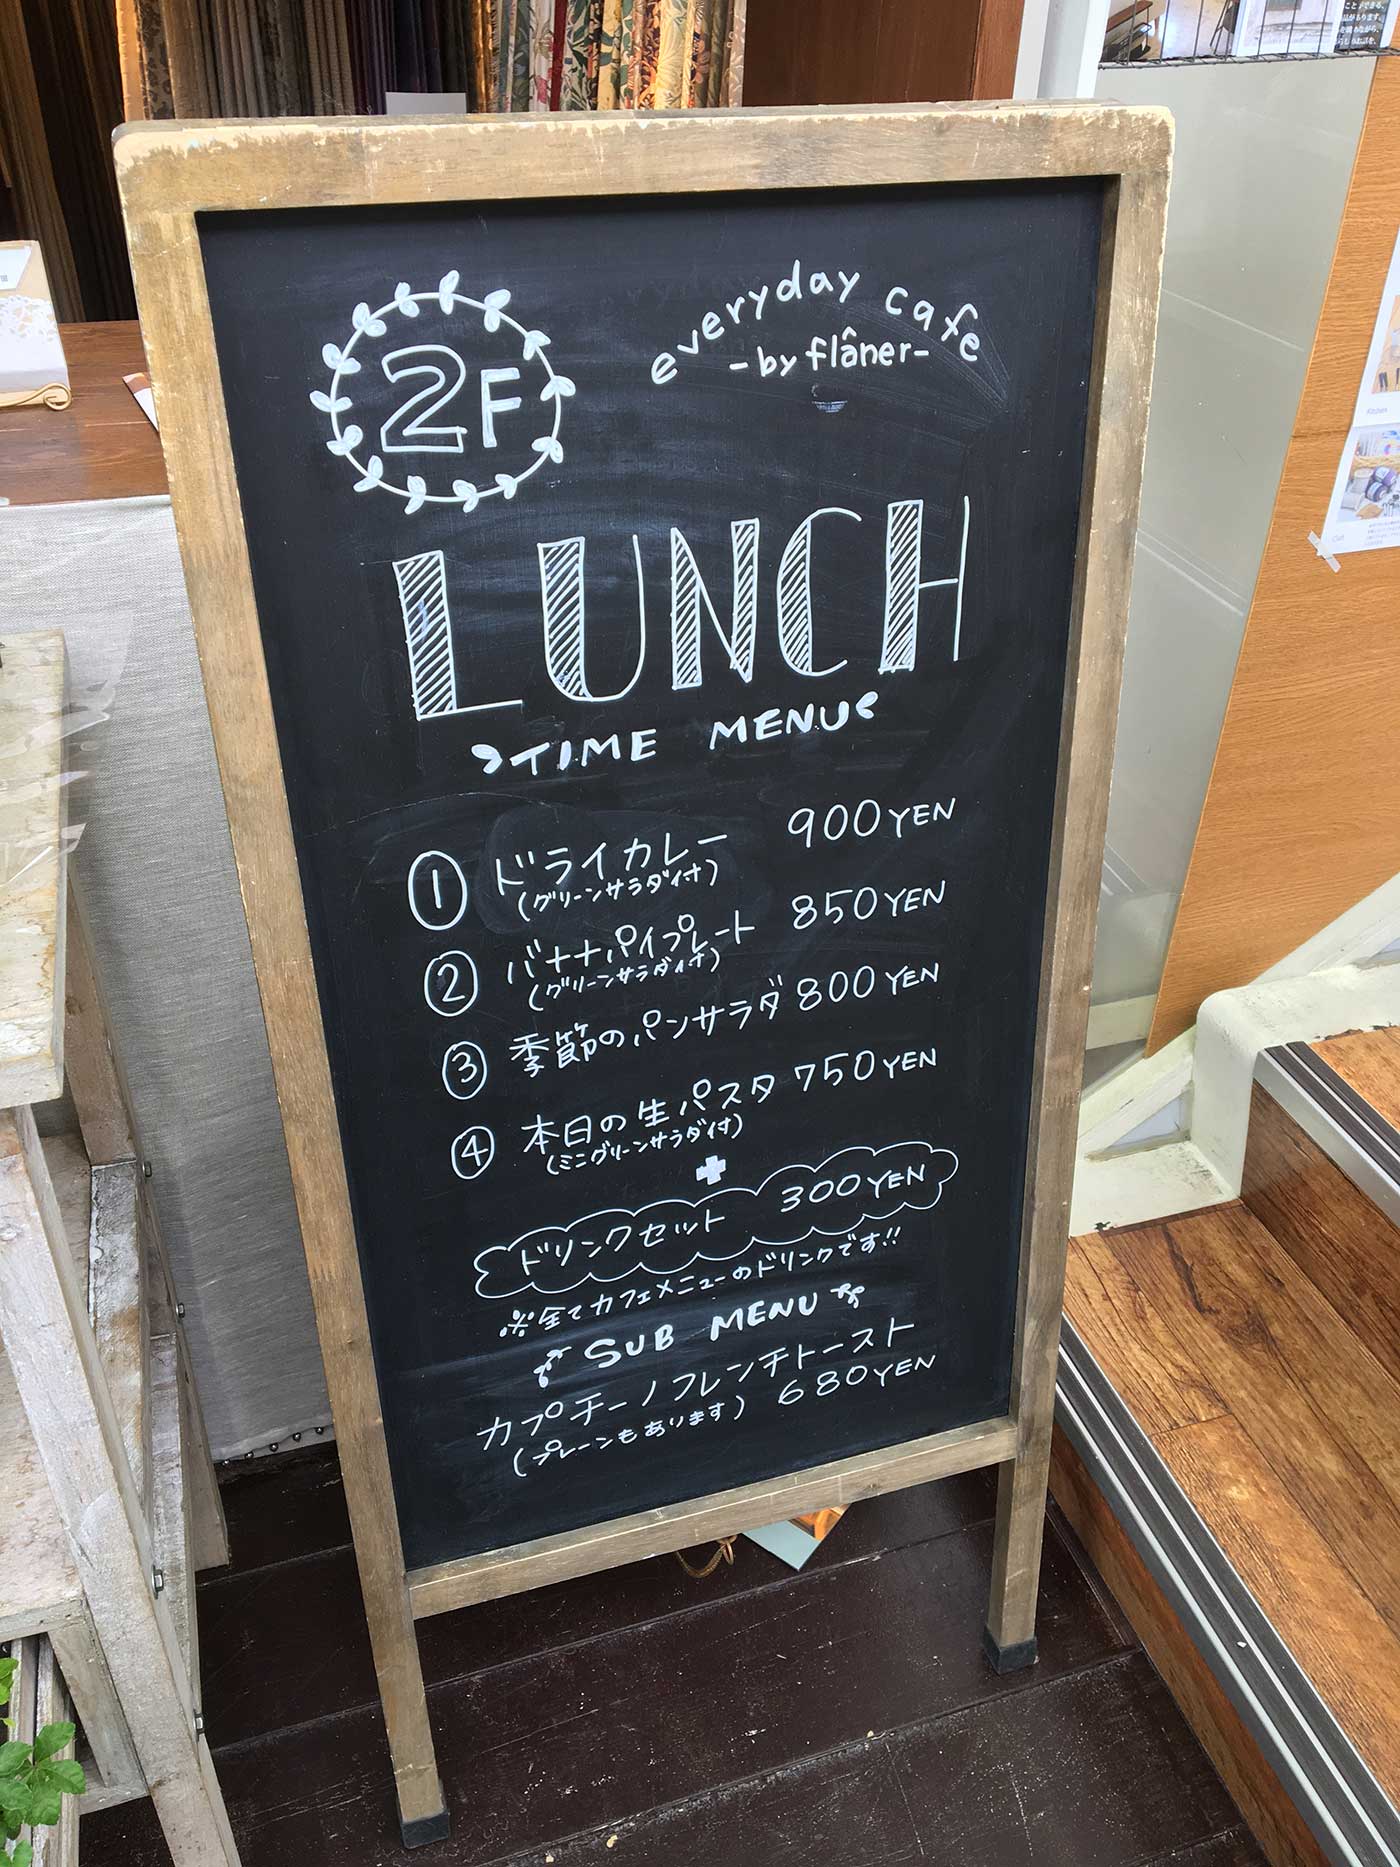 2F
everyday cafe
-by flâner-
LUNCH
TIME MENU
① ドライカレー 900YEN
(グリーンサラダ付)
② バナナパイプレート 850YEN
(グリーンサラダ付)
③ 季節のパンサラダ 800YEN
④ 本日の生パスタ 750YEN
(ミニグリーンサラダ付)
+
ドリンクセット 300YEN
※全てカフェメニューのドリンクです!!
SUB MENU
カプチーノフレンチトースト
(プレーンもあります) 680YEN
Kitchen